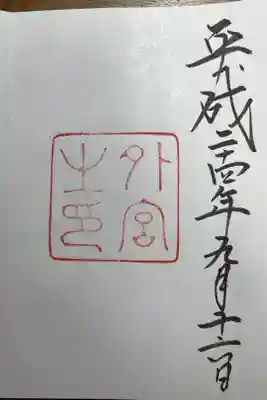 平成二十四年九月十二日
外宮
之印